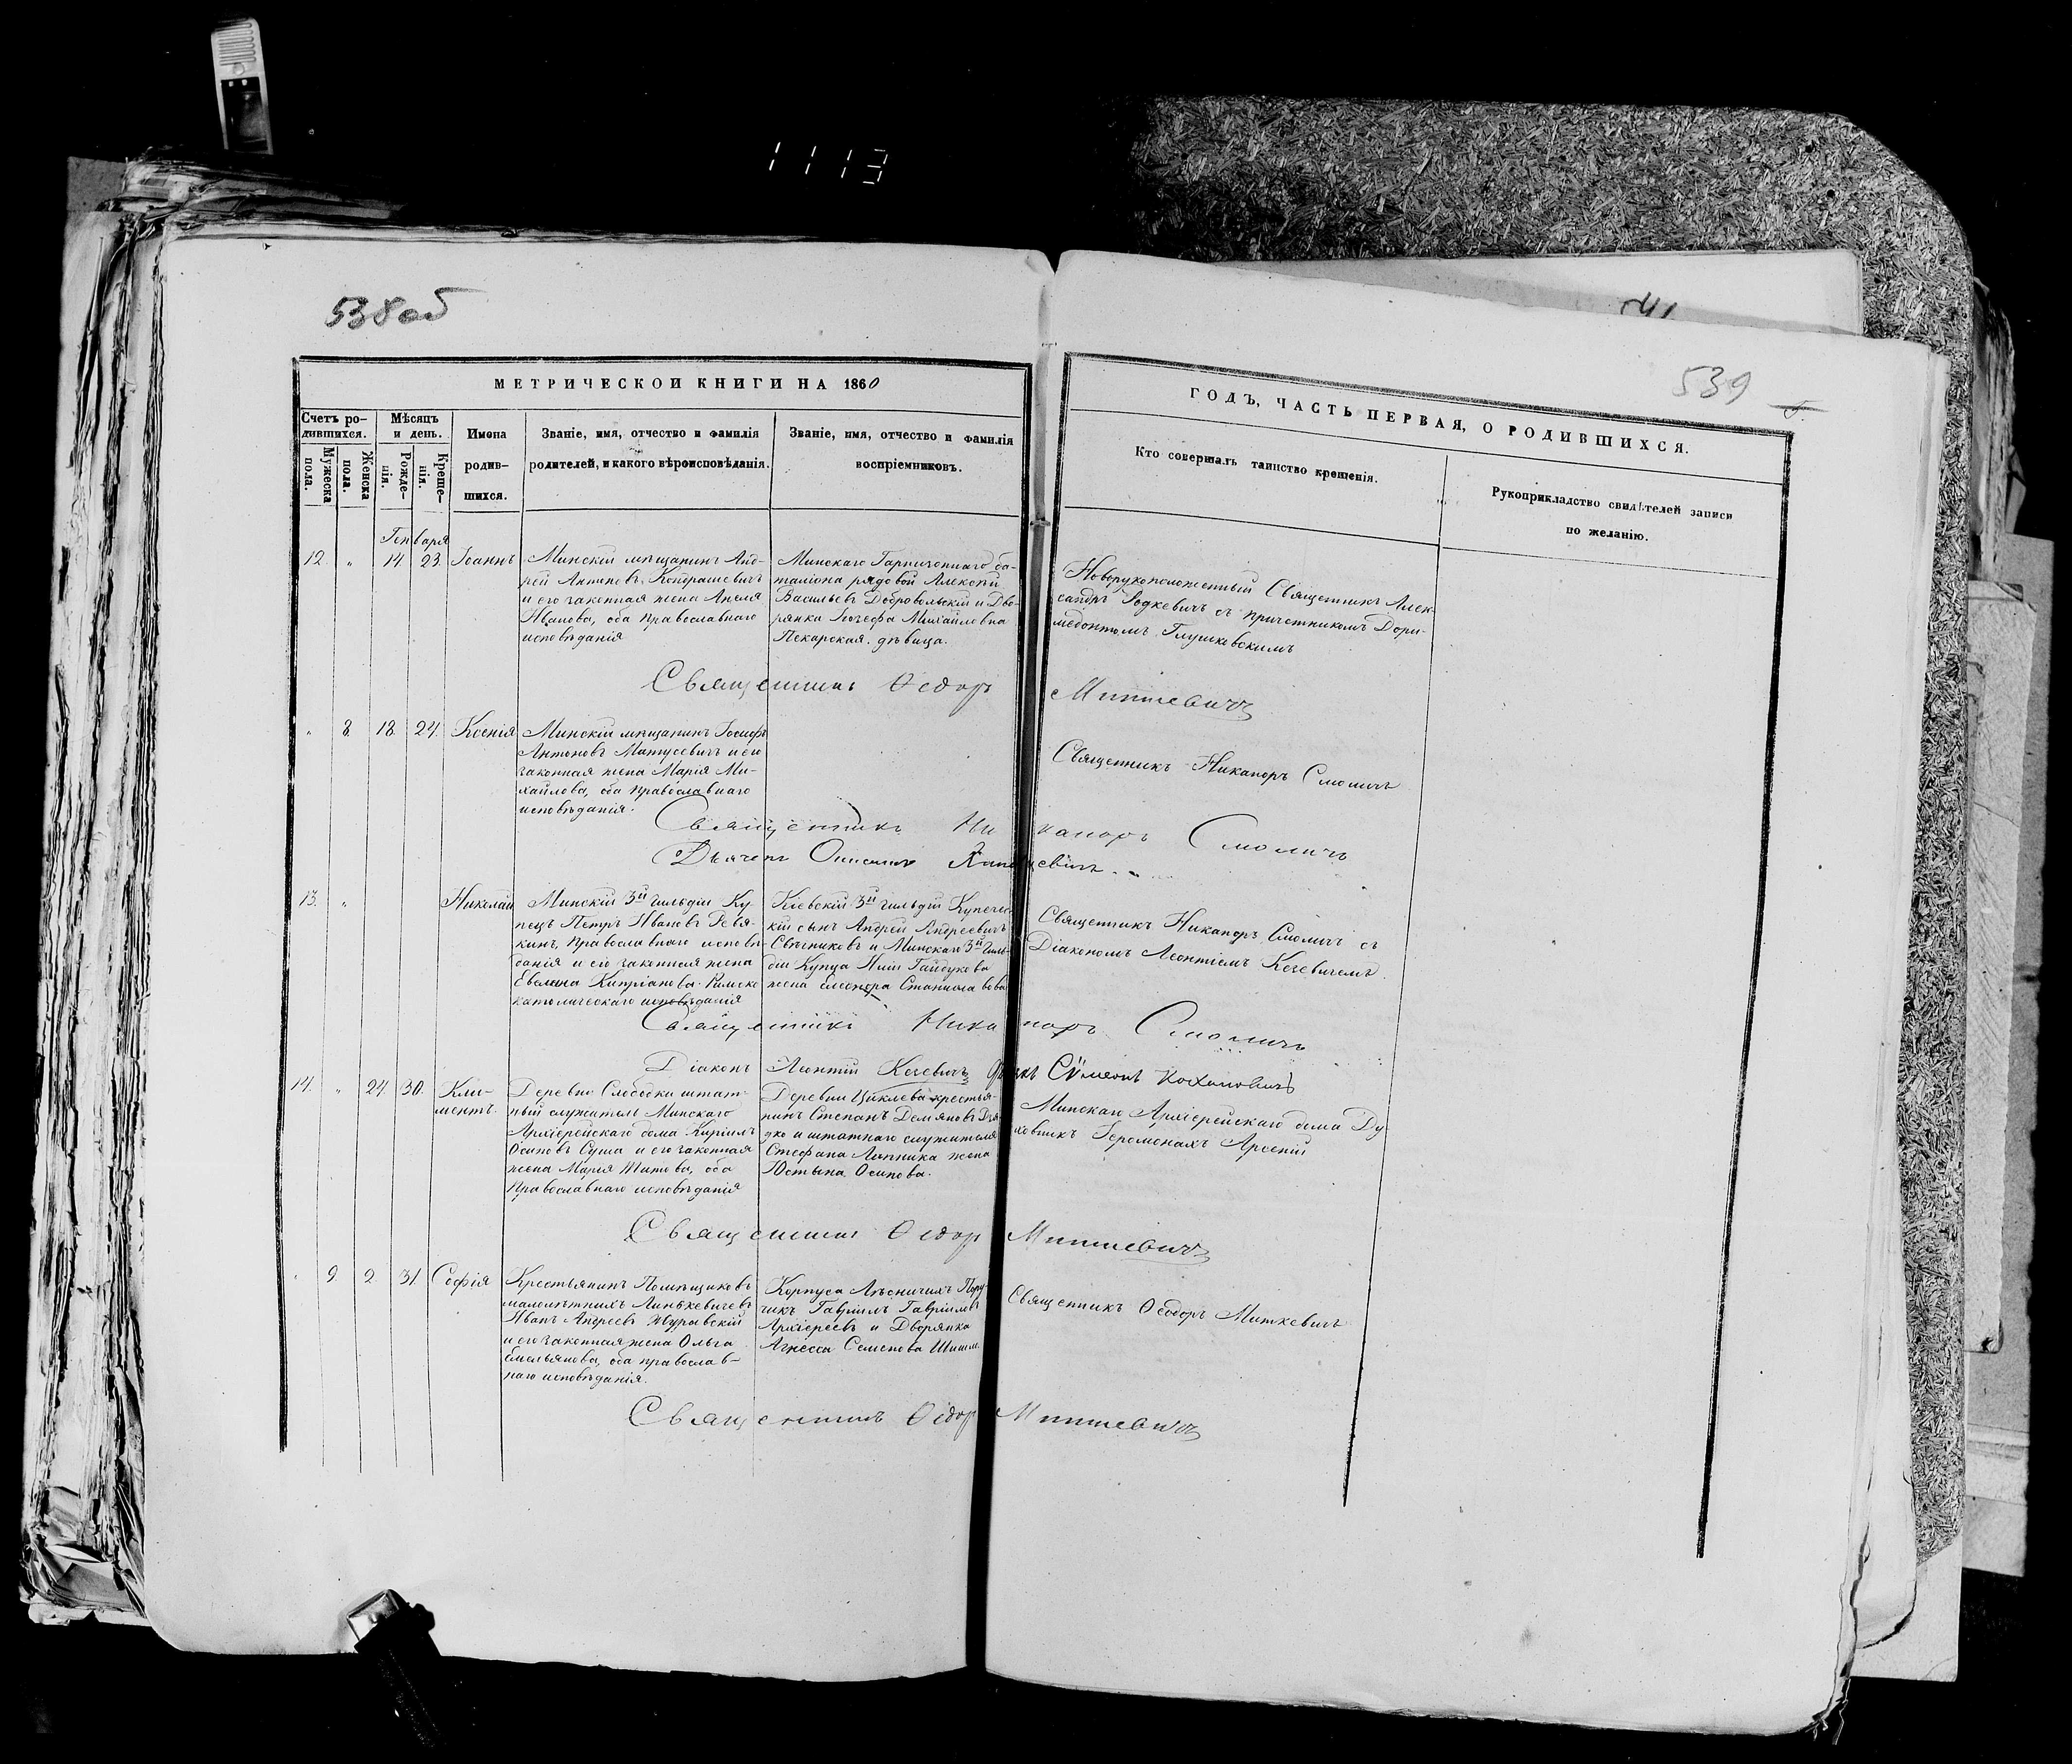 1113
538об
541
539
МЕТРИЧЕСКОЙ КНИГИ НА 1860
ГОДЪ, ЧАСТЬ ПЕРВАЯ, О РОДИВШИХСЯ.
Счетъ ро-
дившихся.
Мужеска
пола.
Женска
пола.
Мѣсяцъ
и день.
Рожде-
нія.
Креще-
нія.
Имена
родив-
шихся.
Званіе, имя, отчество и фамилія
родителей, и какого вѣроисповѣданія.
Званіе, имя, отчество и фамилія
воспріемниковъ.
Кто совершалъ таинство крещенія.
Рукоприкладство свидѣтелей записи
по желанію.
Генваря
12. " 14. 23. Іоаннъ
Минскій мѣщанинъ Анд-
рей Антоновъ Кондрашевичъ
и его законная жена Анеля
Иванова, оба православнаго
исповѣданія
Минскаго Гарнизоннаго ба-
таліона рядовой Алексѣй
Васильевъ Добровольскій и Дво-
рянка Іозефа Михайловна
Пекарская. дѣвица.
Новорукоположенный Священникъ Алек-
сандръ Родкевичъ съ причетникомъ Дори-
медонтомъ Глушковскимъ
Священникъ Ѳеодоръ Миткевичъ
" 8. 18. 24. Ксенія
Минскій мѣщанинъ Іосифъ
Антоновъ Матусевичъ и его
законная жена Марія Ми-
хайлова, оба православнаго
исповѣданія.
Священникъ Никаноръ Смоличъ
Священникъ Никаноръ Смоличъ
Дьячекъ
13. " Николай
Минскій 3й гильдіи Ку-
пецъ Петръ Ивановъ Ревя-
кинъ, православнаго исповѣ-
данія и его законная жена
Евелина Кипріанова Римско
католическаго исповѣданія
Кіевскій 3й гильдіи Купечес-
кій сынъ Андрей Андреевичъ
Свѣчниковъ и Минскаго 3й Гиль-
діи Купца Гайдукова
жена Елеонора Станиславова
Священникъ Никаноръ Смоличъ съ
Діакономъ Леонтіемъ Кочевичемъ.
Священникъ Никаноръ Смоличъ
Діаконъ Леонтій Кочевичъ Дьячекъ Сѵмеонъ Кохановичъ
14. " 24. 30. Кли-
ментъ.
Деревни Слободки штат-
ный служитель Минскаго
Архіерейскаго дома Кириллъ
Осиповъ Суша и его законная
жена Марія Титова, оба
православнаго исповѣданія
Деревни Цнклева крестья-
нинъ Степанъ Демяновъ Дя-
дко и штатнаго служителя
Стефана Липника жена
Юстына Осипова.
Минскаго Архіерейскаго дома Ду-
ховникъ Іеромонахъ Арсеній
Священникъ Ѳеодоръ Миткевичъ
" 9. 2. 31. Софія
Крестьянинъ Помѣщиковъ
малолѣтнихъ Линкевичевъ
Иванъ Андреевъ Журавскій
и его законная жена Ольга
Емельянова, оба православ-
наго исповѣданія.
Корпуса Лѣсничихъ Пору-
чикъ Гавріилъ Гавріиловъ
Архіереевъ и Дворянка
Агнесса Семенова
Священникъ Ѳеодоръ Миткевичъ
Священникъ Ѳеодоръ Миткевичъ